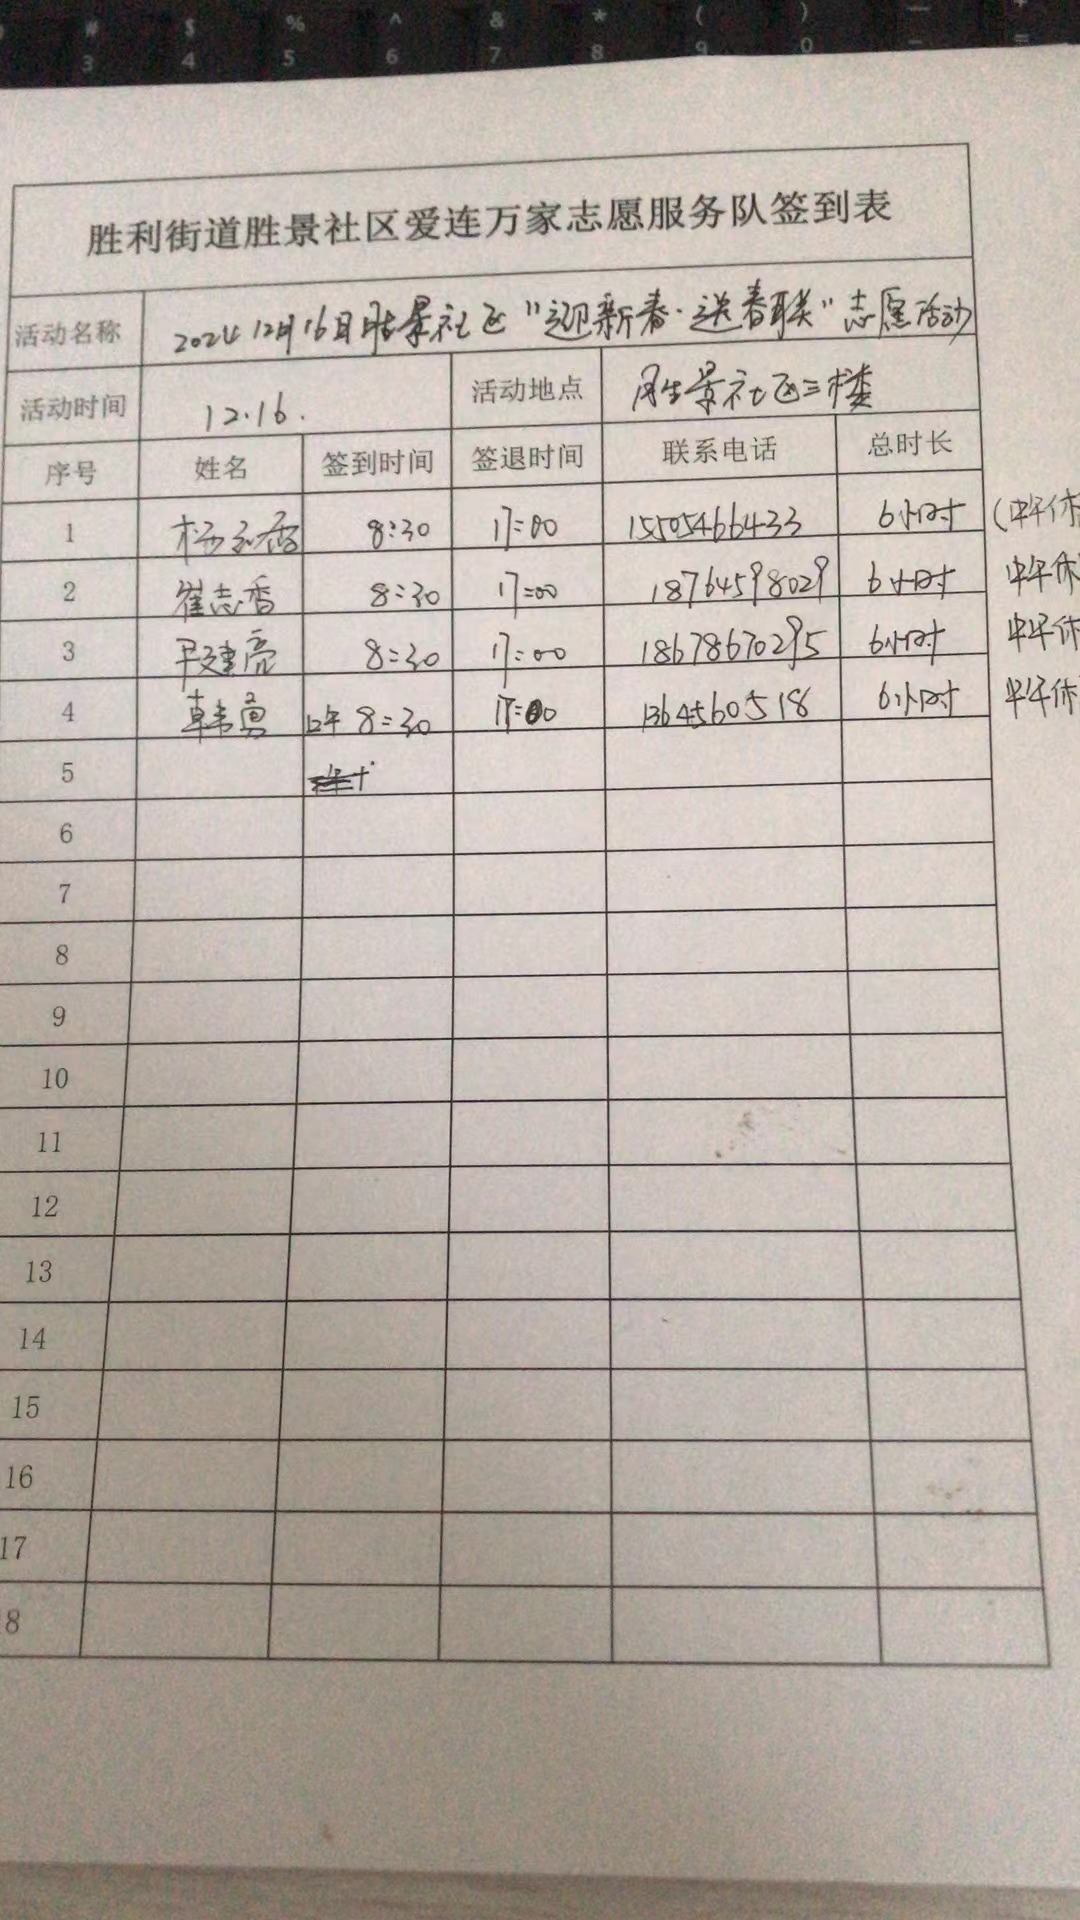 # $ % ^ & * ( ) — +
3 4 5 6 7 8 9 0 - =
胜利街道胜景社区爱连万家志愿服务队签到表
活动名称 2024 12月16日胜景社区"迎新春·送春联"志愿活动
活动时间 12.16. 活动地点 胜景社区三楼
序号 姓名 签到时间 签退时间 联系电话 总时长
1 8:30 17:00 15505466433 6小时 (中午休
2 崔志香 8:30 17:00 18764598029 6小时 中午休
3 尹建亮 8:30 17:00 18678670295 6小时 中午休
4 韩勇 8:30 17:00 1364560518 6小时 中午休
5
6
7
8
9
10
11
12
13
14
15
16
17
8